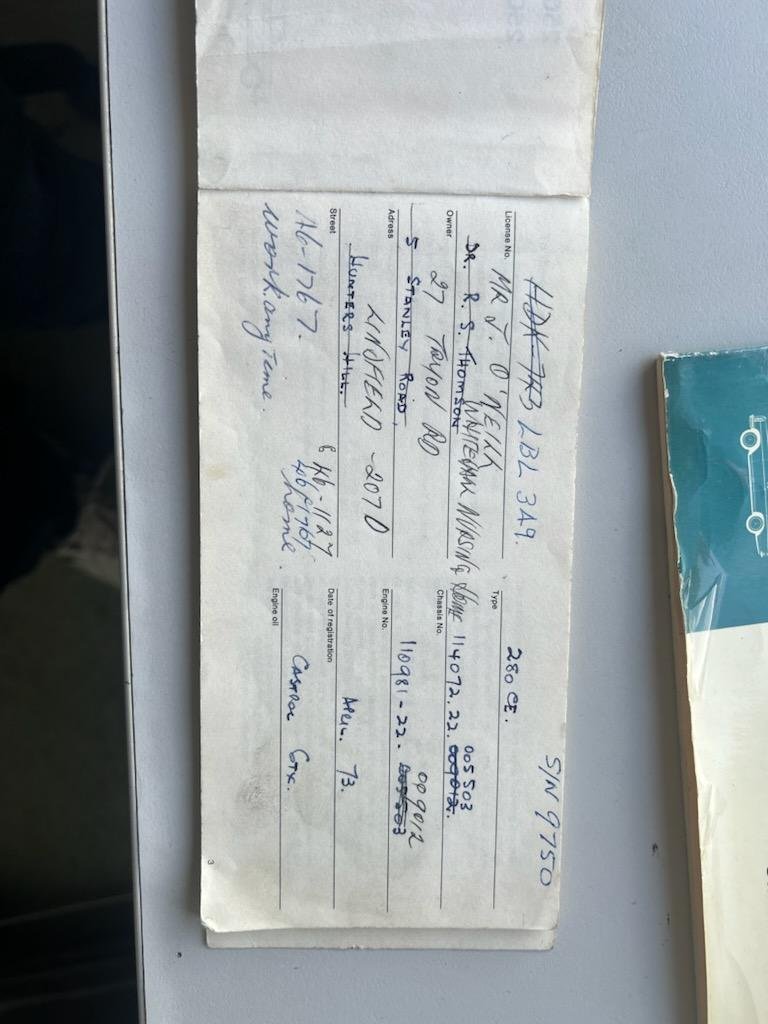 S/N 9750
HDK-743 LBL 3A9.
License No.
Type
280 CE.
MR J. O'NEILL
DR. R. S. THOMSON
WHITEOAK NURSING HOME
Owner
Chassis No.
114072.22. 005503
009012.
27 TRYON RD
5 STANLEY ROAD,
Adress
Engine No.
110981-22. 009012
005503
LINDFIELD - 2070
HUNTERS HILL.
Street
Date of registration
APRIL. 73.
46-1127
46-1767.
work any time.
home.
Engine oil
CASTROL GTX.
3